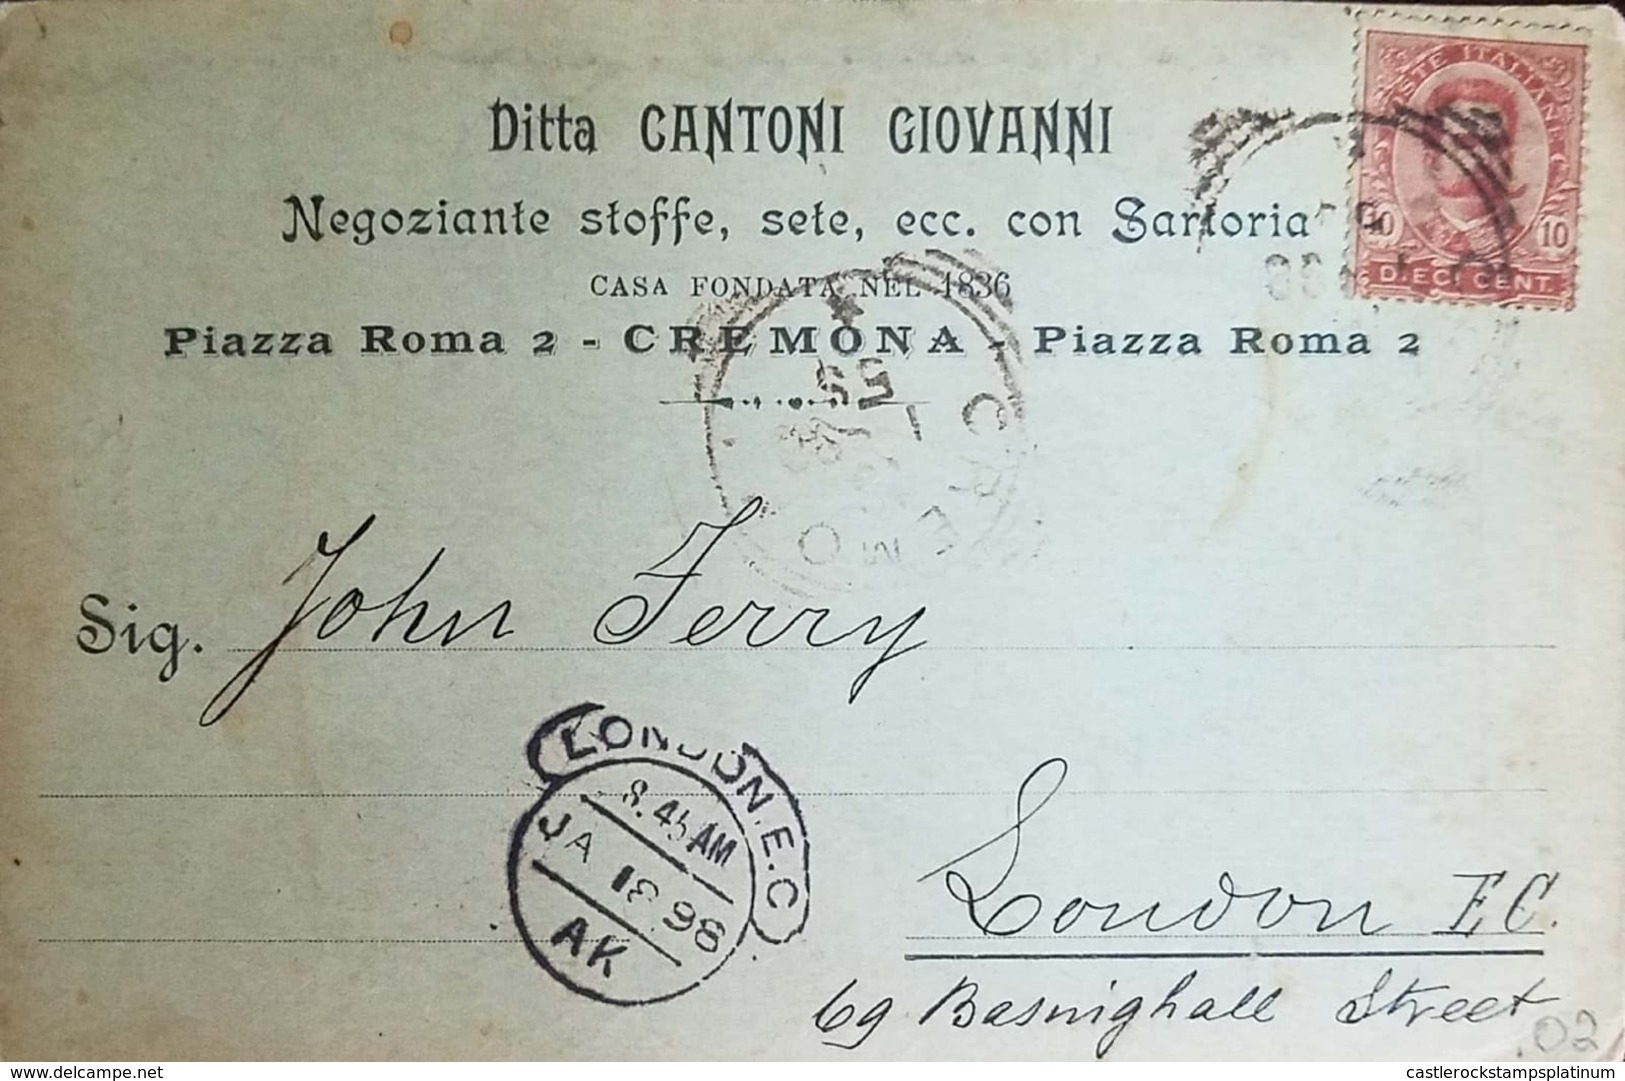 Ditta CANTONI GIOVANNI
POSTE ITALIANE
10 10
DIECI CENT.
Negoziante stoffe, sete, ecc. con Sartoria
CASA FONDATA NEL 1836
Piazza Roma 2 - CREMONA - Piazza Roma 2
CREMO
Sig. John Ferry
LONDON.E.C
8.45 AM
JA 98
AK
London E C.
69 Basinghall Street
.02
delcampe.net
castlerockstampsplatinum